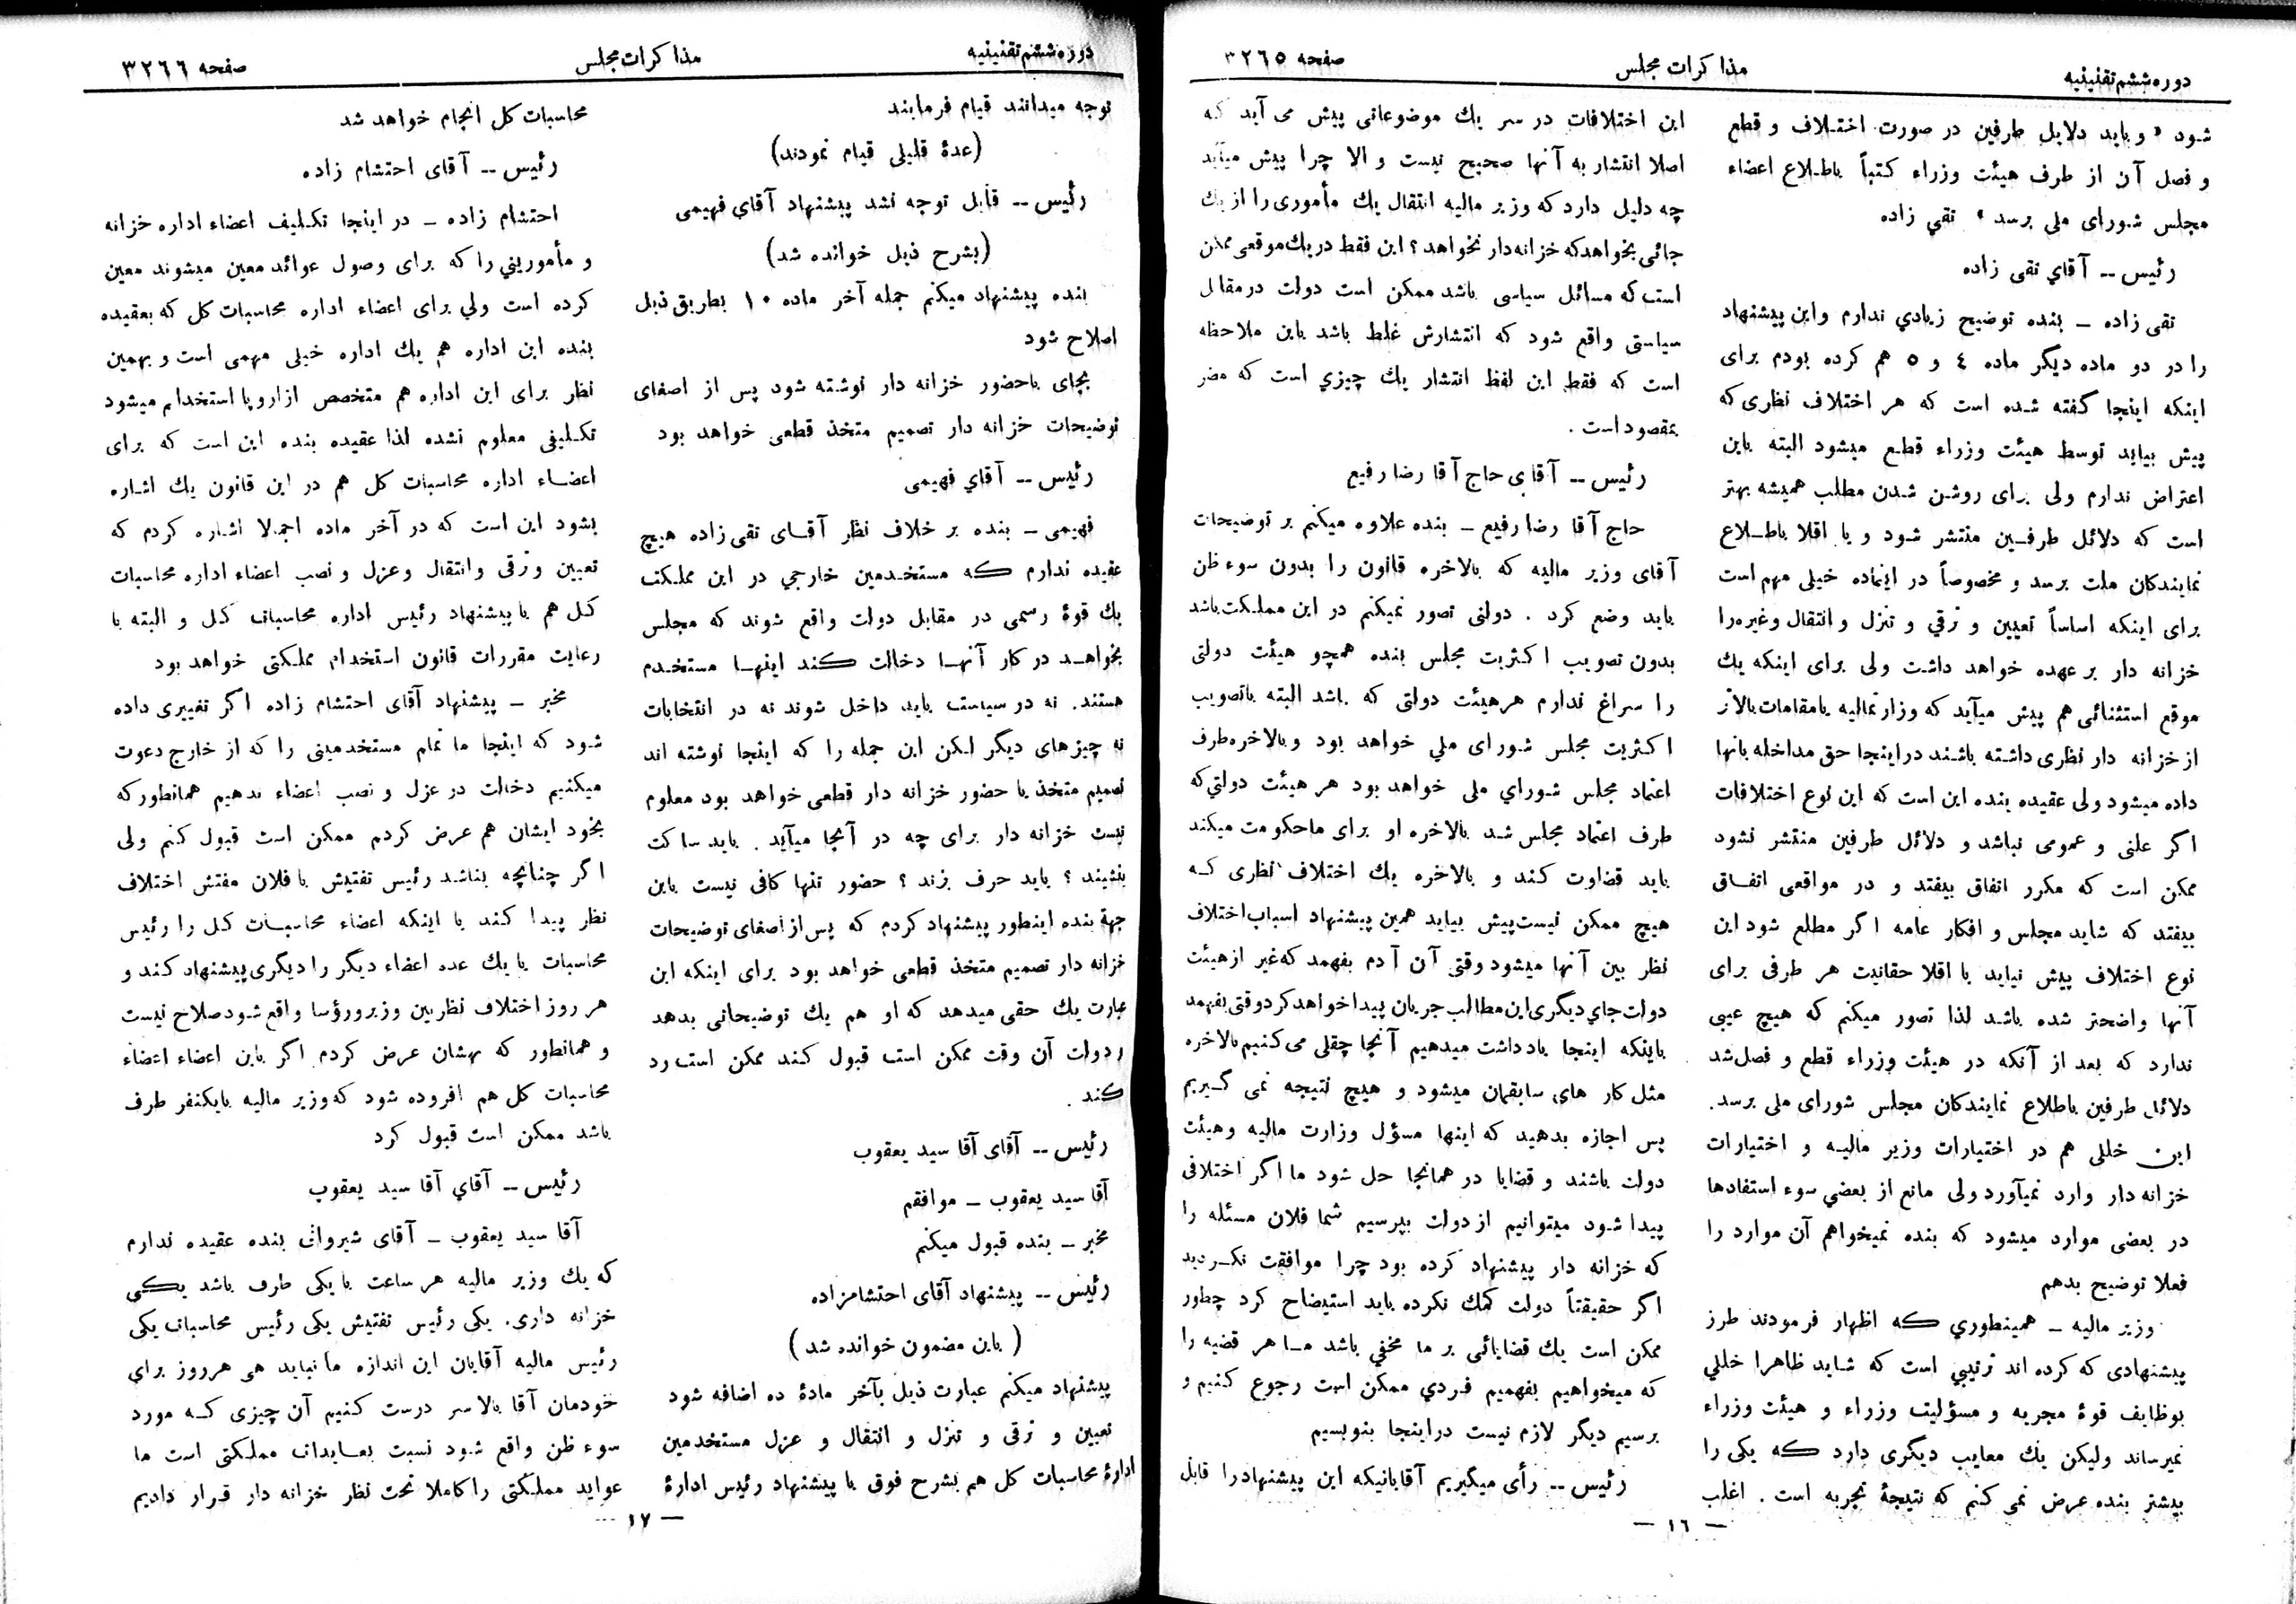 دوره ششم تقنینیه
مذاکرات مجلس
صفحه ۳۲٦٥
شود « و باید دلایل طرفین در صورت اختلاف و قطع
و فصل آن از طرف هیئت وزراء کتباً باطلاع اعضاء
مجلس شورای ملی برسد » تقی زاده
رئیس -- آقای تقی زاده
تقی زاده ـ بنده توضیح زیادی ندارم و این پیشنهاد
را در دو ماده دیگر ماده ٤ و ٥ هم کرده بودم برای
اینکه اینجا گفته شده است که هر اختلاف نظری که
پیش بیاید توسط هیئت وزراء قطع میشود البته باین
اعتراض ندارم ولی برای روشن شدن مطلب همیشه بهتر
است که دلائل طرفین منتشر شود و یا اقلا باطلاع
نمایندکان ملت برسد و مخصوصاً در اینماده خیلی مهم است
برای اینکه اساساً تعیین و ترقی و تنزل و انتقال و غیره را
خزانه دار بر عهده خواهد داشت ولی برای اینکه یك
موقع استثنائی هم پیش میآید که وزارتمالیه یا مقامات بالاتر
از خزانه دار نظری داشته باشند در اینجا حق مداخله بآنها
داده میشود ولی عقیده بنده این است که این نوع اختلافات
اگر علنی و عمومی نباشد و دلائل طرفین منتشر نشود
ممکن است که مکرر اتفاق بیفتد و در مواقعی اتفاق
بیفتد که شاید مجلس و افکار عامه اگر مطلع شود این
نوع اختلاف پیش نیاید یا اقلا حقانیت هر طرفی برای
آنها واضحتر شده باشد لذا تصور میکنم که هیچ عیبی
ندارد که بعد از آنکه در هیئت وزراء قطع و فصل شد
دلائل طرفین باطلاع نمایندکان مجلس شورای ملی برسد.
این خللی هم در اختیارات وزیر مالیه و اختیارات
خزانه دار وارد نمیآورد ولی مانع از بعضی سوء استفادها
در بعضی موارد میشود که بنده نمیخواهم آن موارد را
فعلا توضیح بدهم
وزیر مالیه ـ همینطوری که اظهار فرمودند طرز
پیشنهادی که کرده اند ترتیبی است که شاید ظاهرا خللی
بوظایف قوهٔ مجریه و مسؤلیت وزراء و هیئت وزراء
نمیرساند ولیکن یك معایب دیگری دارد که یکی را
بیشتر بنده عرض نمی کنم که نتیجهٔ تجربه است . اغلب
این اختلافات در سر یك موضوعاتی پیش می آید که
اصلا انتشار به آنها صحیح نیست و الا چرا پیش میآید
چه دلیل دارد که وزیر مالیه انتقال یك مأموری را از یك
جائی بخواهد که خزانه دار نخواهد ؟ این فقط در یك موقعی ممکن
است که مسائل سیاسی باشد ممکن است دولت در مقابل
سیاستی واقع شود که انتشارش غلط باشد باین ملاحظه
است که فقط این لفظ انتشار یك چیزی است که مضر
بمقصود است .
رئیس -- آقای حاج آقا رضا رفیع
حاج آقا رضا رفیع ـ بنده علاوه میکنم بر توضیحات
آقای وزیر مالیه که بالاخره قانون را بدون سوء ظن
باید وضع کرد . دولتی تصور نمیکنم در این مملکت باشد
بدون تصویب اکثریت مجلس بنده همچو هیئت دولتی
را سراغ ندارم هر هیئت دولتی که باشد البته باتصویب
اکثریت مجلس شورای ملی خواهد بود و بالاخره طرف
اعتماد مجلس شورای ملی خواهد بود هر هیئت دولتی که
طرف اعتماد مجلس شد بالاخره او برای ما حکومت میکند
باید قضاوت کند و بالاخره یك اختلاف نظری که
هیچ ممکن نیست پیش بیاید همین پیشنهاد اسباب اختلاف
نظر بین آنها میشود وقتی آن آدم بفهمد که غیر از هیئت
دولت جای دیگری این مطالب جریان پیدا خواهد کرد وقتی بفهمد
باینکه اینجا یاد داشت میدهیم آنجا چقلی می کنیم بالاخره
مثل کار های سابقمان میشود و هیچ نتیجه نمی گیریم
پس اجازه بدهید که اینها مسؤل وزارت مالیه و هیئت
دولت باشند و قضایا در همانجا حل شود ما اگر اختلافی
پیدا شود میتوانیم از دولت بپرسیم شما فلان مسئله را
که خزانه دار پیشنهاد کرده بود چرا موافقت نکردید
اگر حقیقتاً دولت کمك نکرده باید استیضاح کرد چطور
ممکن است یك قضایائی بر ما مخفی باشد ما هر قضیه را
که میخواهیم بفهمیم فردی ممکن است رجوع کنیم و
برسیم دیگر لازم نیست در اینجا بنویسیم
رئیس -- رأی میگیریم آقایانیکه این پیشنهاد را قابل
— ١٦ —
دوره ششم تقنینیه
مذاکرات مجلس
صفحه ۳۲٦٦
توجه میدانند قیام فرمایند
(عدهٔ قلیلی قیام نمودند)
رئیس -- قابل توجه نشد پیشنهاد آقای فهیمی
(بشرح ذیل خوانده شد)
بنده پیشنهاد میکنم جمله آخر ماده ۱۰ بطریق ذیل
اصلاح شود
بجای باحضور خزانه دار نوشته شود پس از اصغای
توضیحات خزانه دار تصمیم متخذ قطعی خواهد بود
رئیس -- آقای فهیمی
فهیمی ـ بنده بر خلاف نظر آقای تقی زاده هیچ
عقیده ندارم که مستخدمین خارجی در این مملکت
یك قوهٔ رسمی در مقابل دولت واقع شوند که مجلس
بخواهد در کار آنها دخالت کند اینها مستخدم
هستند. نه در سیاست باید داخل شوند نه در انتخابات
نه چیزهای دیگر لکن این جمله را که اینجا نوشته اند
تصمیم متخذ با حضور خزانه دار قطعی خواهد بود معلوم
نیست خزانه دار برای چه در آنجا میآید . باید ساکت
بنشیند ؟ باید حرف بزند ؟ حضور تنها کافی نیست باین
جهة بنده اینطور پیشنهاد کردم که پس از اصغای توضیحات
خزانه دار تصمیم متخذ قطعی خواهد بود برای اینکه این
عبارت یك حقی میدهد که او هم یك توضیحاتی بدهد
دولت آن وقت ممکن است قبول کند ممکن است رد
کند .
رئیس -- آقای آقا سید یعقوب
آقا سید یعقوب ـ موافقم
مخبر ـ بنده قبول میکنم
رئیس -- پیشنهاد آقای احتشامزاده
( باین مضمون خوانده شد )
پیشنهاد میکنم عبارت ذیل بآخر مادهٔ ده اضافه شود
تعیین و ترقی و تنزل و انتقال و عزل مستخدمین
ادارهٔ محاسبات کل هم بشرح فوق با پیشنهاد رئیس ادارهٔ
محاسبات کل انجام خواهد شد
رئیس -- آقای احتشام زاده
احتشام زاده ـ در اینجا تکلیف اعضاء اداره خزانه
و مأمورینی را که برای وصول عوائد معین میشوند معین
کرده است ولی برای اعضاء اداره محاسبات کل که بعقیده
بنده این اداره هم یك اداره خیلی مهمی است و بهمین
نظر برای این اداره هم متخصص از اروپا استخدام میشود
تکلیفی معلوم نشده لذا عقیده بنده این است که برای
اعضاء اداره محاسبات کل هم در این قانون یك اشاره
بشود این است که در آخر ماده اجمالا اشاره کردم که
تعیین و ترقی و انتقال و عزل و نصب اعضاء اداره محاسبات
کل هم با پیشنهاد رئیس اداره محاسبات کل و البته با
رعایت مقررات قانون استخدام مملکتی خواهد بود
مخبر ـ پیشنهاد آقای احتشام زاده اگر تغییری داده
شود که اینجا ما تمام مستخدمینی را که از خارج دعوت
میکنیم دخالت در عزل و نصب اعضاء ندهیم همانطور که
بخود ایشان هم عرض کردم ممکن است قبول کنم ولی
اگر چنانچه بناشد رئیس تفتیش با فلان مفتش اختلاف
نظر پیدا کند یا اینکه اعضاء محاسبات کل را رئیس
محاسبات یا یك عده اعضاء دیگر را دیگری پیشنهاد کند و
هر روز اختلاف نظر بین وزیر و رؤسا واقع شود صلاح نیست
و همانطور که بهشان عرض کردم اگر باین اعضاء اعضاء
محاسبات کل هم افزوده شود که وزیر مالیه بایکنفر طرف
باشد ممکن است قبول کرد
رئیس -- آقای آقا سید یعقوب
آقا سید یعقوب ـ آقای شیروانی بنده عقیده ندارم
که یك وزیر مالیه هر ساعت با یکی طرف باشد یکی
خزانه داری. یکی رئیس تفتیش یکی رئیس محاسبات یکی
رئیس مالیه آقایان این اندازه ما نباید هی هر روز برای
خودمان آقا بالاسر درست کنیم آن چیزی که مورد
سوء ظن واقع شود نسبت بعایدات مملکتی است ما
عواید مملکتی را کاملا تحت نظر خزانه دار قرار دادیم
— ١٧ —